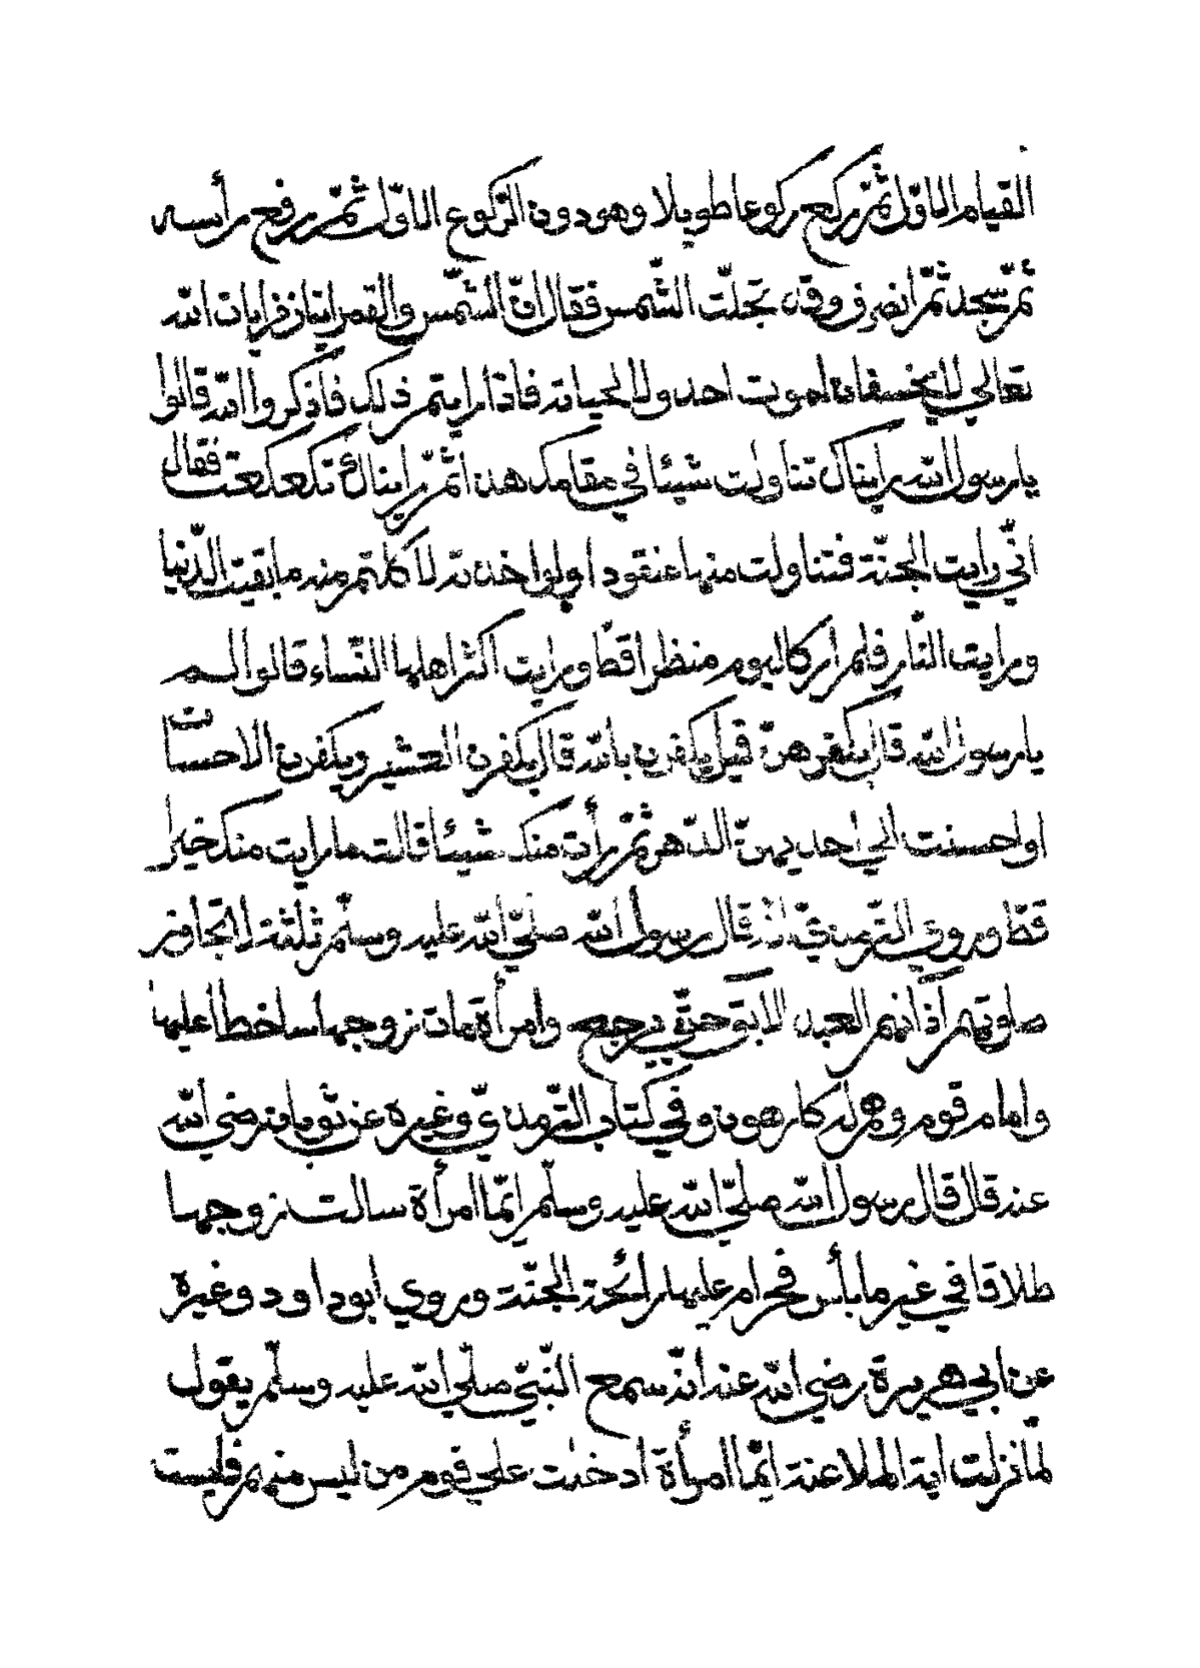 القيام الاوّل ثمّ ركع ركوعا طويلا وهو دون الرّكوع الاوّل ثمّ رفع رأسه
ثمّ سجد ثمّ انصرف وقد تجلّت الشّمس فقال انّ الشّمس والقمر ايتان من ايات الله
تعالي لا يخسفان لموت احد ولا لحياته فاذا رايتم ذلك فاذكروا الله قالوا
يا رسول الله رايناك تناولت شيئا في مقامك هذا ثمّ رايناك تكعكعت فقال
انّي رايت الجنّة فتناولت منها عنقودا ولو اخذته لاكلتم منه ما بقيت الدّنيا
ورايت النّار فلم ار كاليوم منظرا قطّ ورايت اكثر اهلها النّساء قالوا لم
يا رسول الله قال بكفرهنّ قيل يكفرن بالله قال يكفرن العشير ويكفرن الاحسان
لو احسنت الي احديهنّ الدّهر ثمّ رأت منك شيئا قالت ما رايت منك خيرا
قطّ وروي التّرمذيّ انّه قال رسول الله صلّي الله عليه وسلّم ثلثة لا تجاوز
صلوتهم آذانهم العبد الآبق حتّي يرجع وامرأة مات زوجها ساخطا عليها
وامام قوم وهم له كارهون وفي كتاب التّرمذيّ وغيره عن ثوبان رضي الله
عنه قال قال رسول الله صلّي الله عليه وسلّم ايّما امرأة سالت زوجها
طلاقا في غير ما بأس فحرام عليها رائحة الجنّة وروي ابو داود وغيره
عن ابي هريرة رضي الله عنه انّه سمع النّبيّ صلّي الله عليه وسلّم يقول
لمّا نزلت اية الملاعنة ايّما امرأة ادخلت علي قوم من ليس منهم فليست